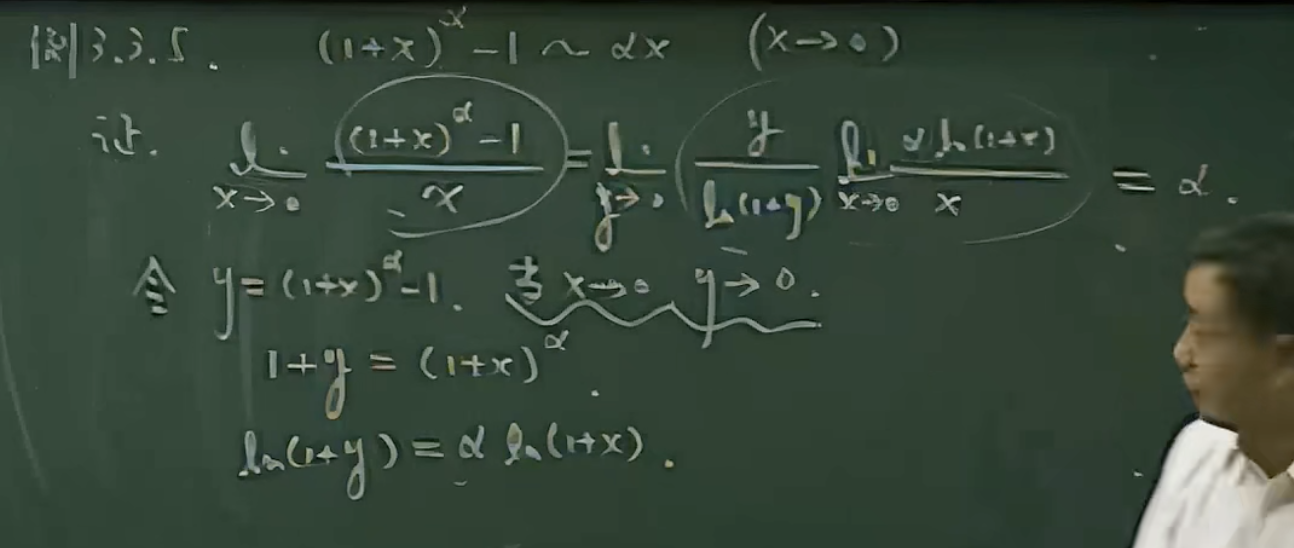 例3.3.5. (1+x)^α -1 ~ αx (x→0)
证. lim_{x→0} \frac{(1+x)^α -1}{x} = lim_{y→0} \frac{y}{ln(1+y)} lim_{x→0} \frac{α ln(1+x)}{x} = α.
令 y=(1+x)^α -1. 当 x→0 y→0.
1+y = (1+x)^α.
ln(1+y) = α ln(1+x).